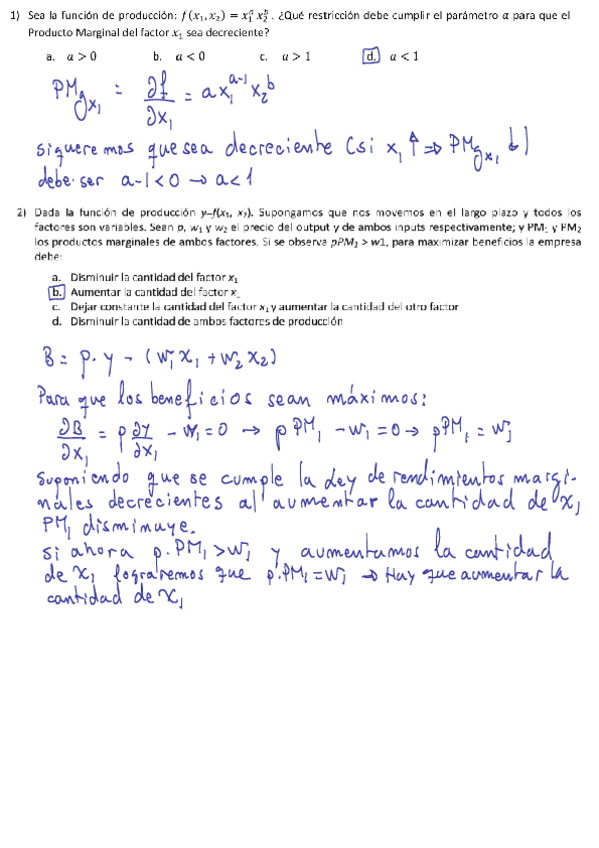 1) Sea la función de producción: f(x₁, x₂) = x₁ᵃ x₂ᵇ . ¿Qué restricción debe cumplir el parámetro a para que el
Producto Marginal del factor x₁ sea decreciente?
a. a > 0 b. a < 0 c. a > 1 d. a < 1
PMgx₁ = ∂f/∂x₁ = a x₁ᵃ⁻¹ x₂ᵇ
siquere mos que sea decreciente (si x₁ ↑ ⇒ PMgx₁ ↓)
debe ser a-1 < 0 → a < 1
2) Dada la función de producción y=f(x₁, x₂). Supongamos que nos movemos en el largo plazo y todos los
factores son variables. Sean p, w₁ y w₂ el precio del output y de ambos inputs respectivamente; y PM₁ y PM₂
los productos marginales de ambos factores. Si se observa pPM₁ > w1, para maximizar beneficios la empresa
debe:
a. Disminuir la cantidad del factor x₁
b. Aumentar la cantidad del factor x₁
c. Dejar constante la cantidad del factor x₁ y aumentar la cantidad del otro factor
d. Disminuir la cantidad de ambos factores de producción
B = p · y - (w₁ x₁ + w₂ x₂)
Para que los beneficios sean máximos:
∂B/∂x₁ = p ∂y/∂x₁ - w₁ = 0 → p PM₁ - w₁ = 0 → p PM₁ = w₁
Suponiendo que se cumple la Ley de rendimientos margi-
nales decrecientes al aumentar la cantidad de x₁
PM₁ disminuye.
Si ahora p. PM₁ > w₁ y aumentamos la cantidad
de x₁ lograremos que p.PM₁ = w₁ → Hay que aumentar la
cantidad de x₁